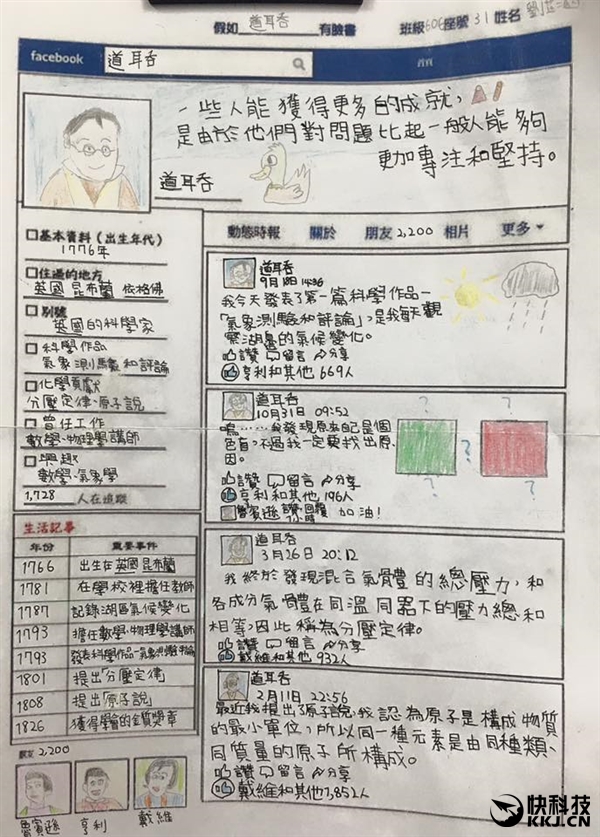 假如 道耳吞 有臉書
班級606座號31姓名
facebook
道耳吞
首頁
一些人能獲得更多的成就,
是由於他們對問題比起一般人能夠
更加專注和堅持。
道耳吞
動態時報 關於 朋友2,200 相片 更多
基本資料(出生年代)
1776年
住過的地方
英國 昆布蘭 依格佛
別號
英國的科學家
科學作品
氣象測驗和評論
化學貢獻
分壓定律、原子說
曾任工作
數學、物理學講師
興趣
數學、氣象學
1,728 人在追蹤
生活記事
年份 重要事件
1766 出生在英國昆布蘭
1781 在學校裡擔任教師
1787 記錄湖區氣候變化
1793 擔任數學、物理學講師
1793 發表科學作品-氣象測驗和評論
1801 提出「分壓定律」
1808 提出「原子說」
1826 獲得學會的金質獎章
朋友 2,200
魯賓遜 亨利 戴維
道耳吞
9月18日 14:36
我今天發表了第一篇科學作品—
「氣象測驗和評論」,是我每天觀
察湖邊的氣候變化。
讚 留言 分享
亨利和其他 669人
道耳吞
10月31日 09:52
嗚……我發現原來自己是個
色盲,不過我一定要找出原
因。
? ? ? ? ?
讚 留言 分享
亨利和其他 196人
魯賓遜 讚 回覆 加油!
道耳吞
3月26日 20:12
我終於發現混合氣體的總壓力,和
各成分氣體在同溫同器下的壓力總和
相等,因此稱為分壓定律。
讚 留言 分享
戴維和其他 932人
道耳吞
2月11日 22:56
最近我提出了原子說,我認為原子是構成物質
的最小單位,所以同一種元素是由同種類、
同質量的原子所構成。
讚 留言 分享
戴維和其他 1,852人
快科技
KKJ.CN